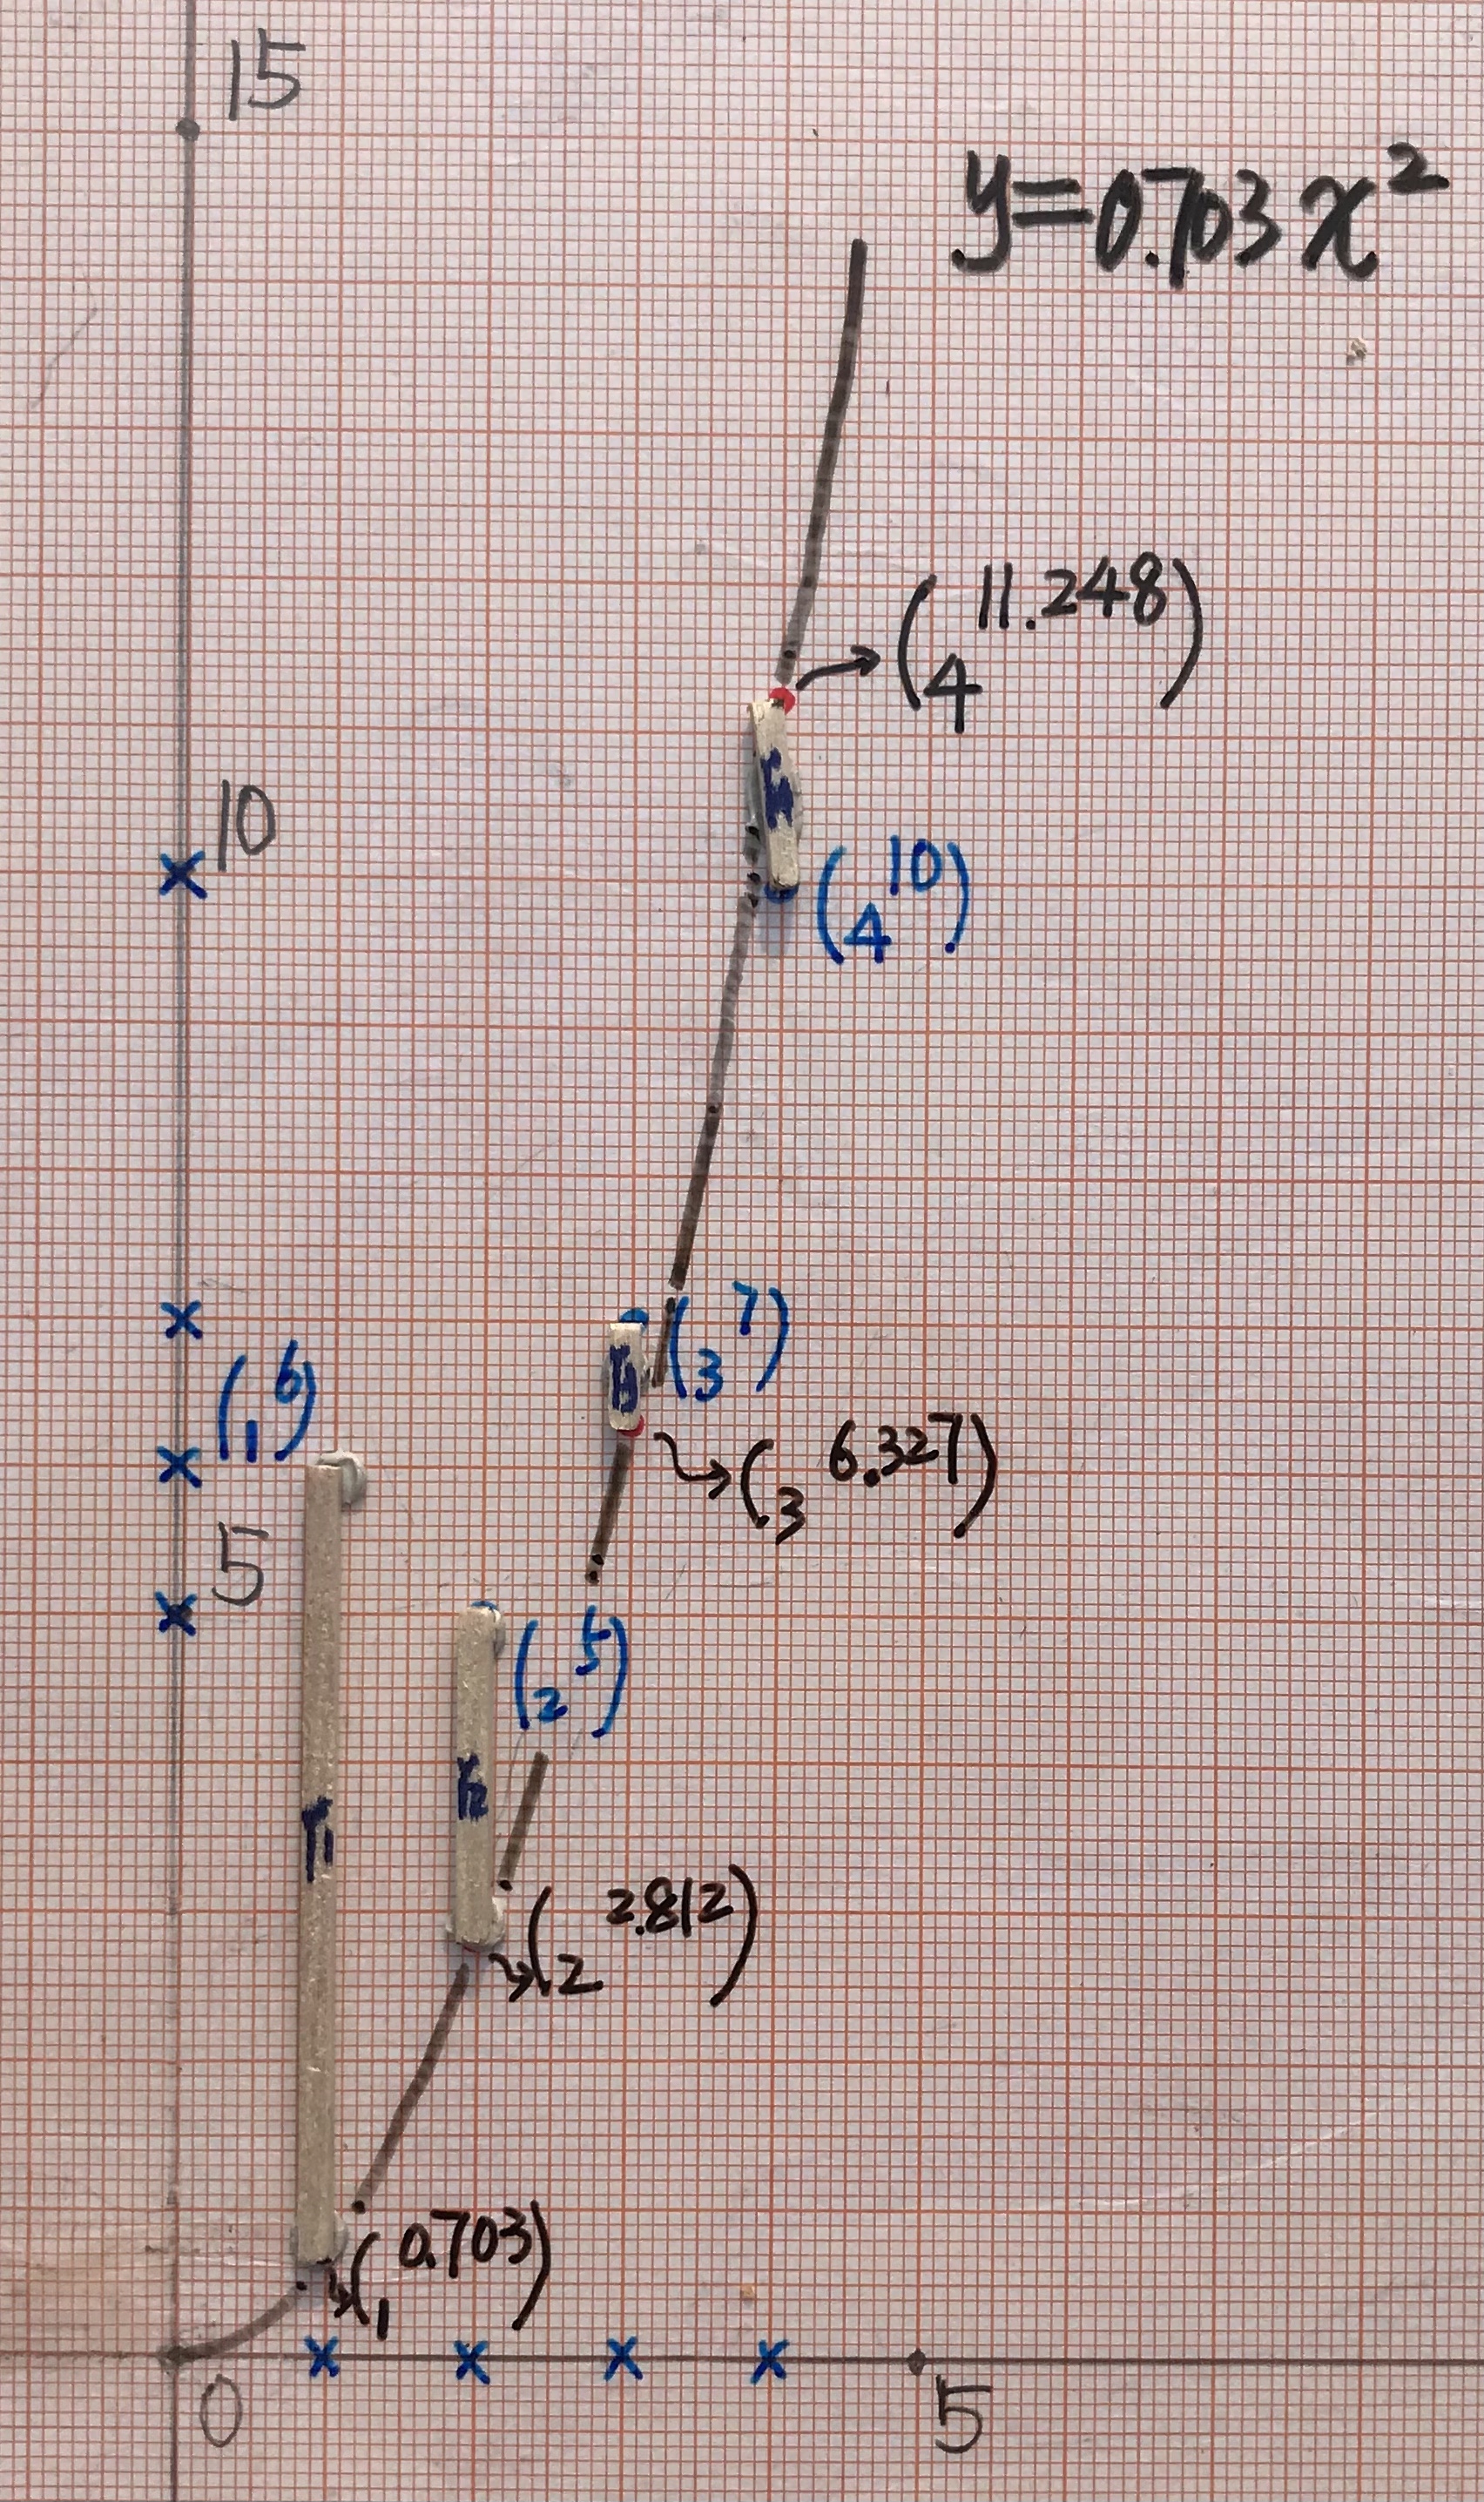 15
y=0.703x²
(4 11.248)
10
r4
(4 10)
(3 7)
r3
(1 6)
(3 6.327)
5
(2 5)
r2
r1
(2 2.812)
(1 0.703)
0
5